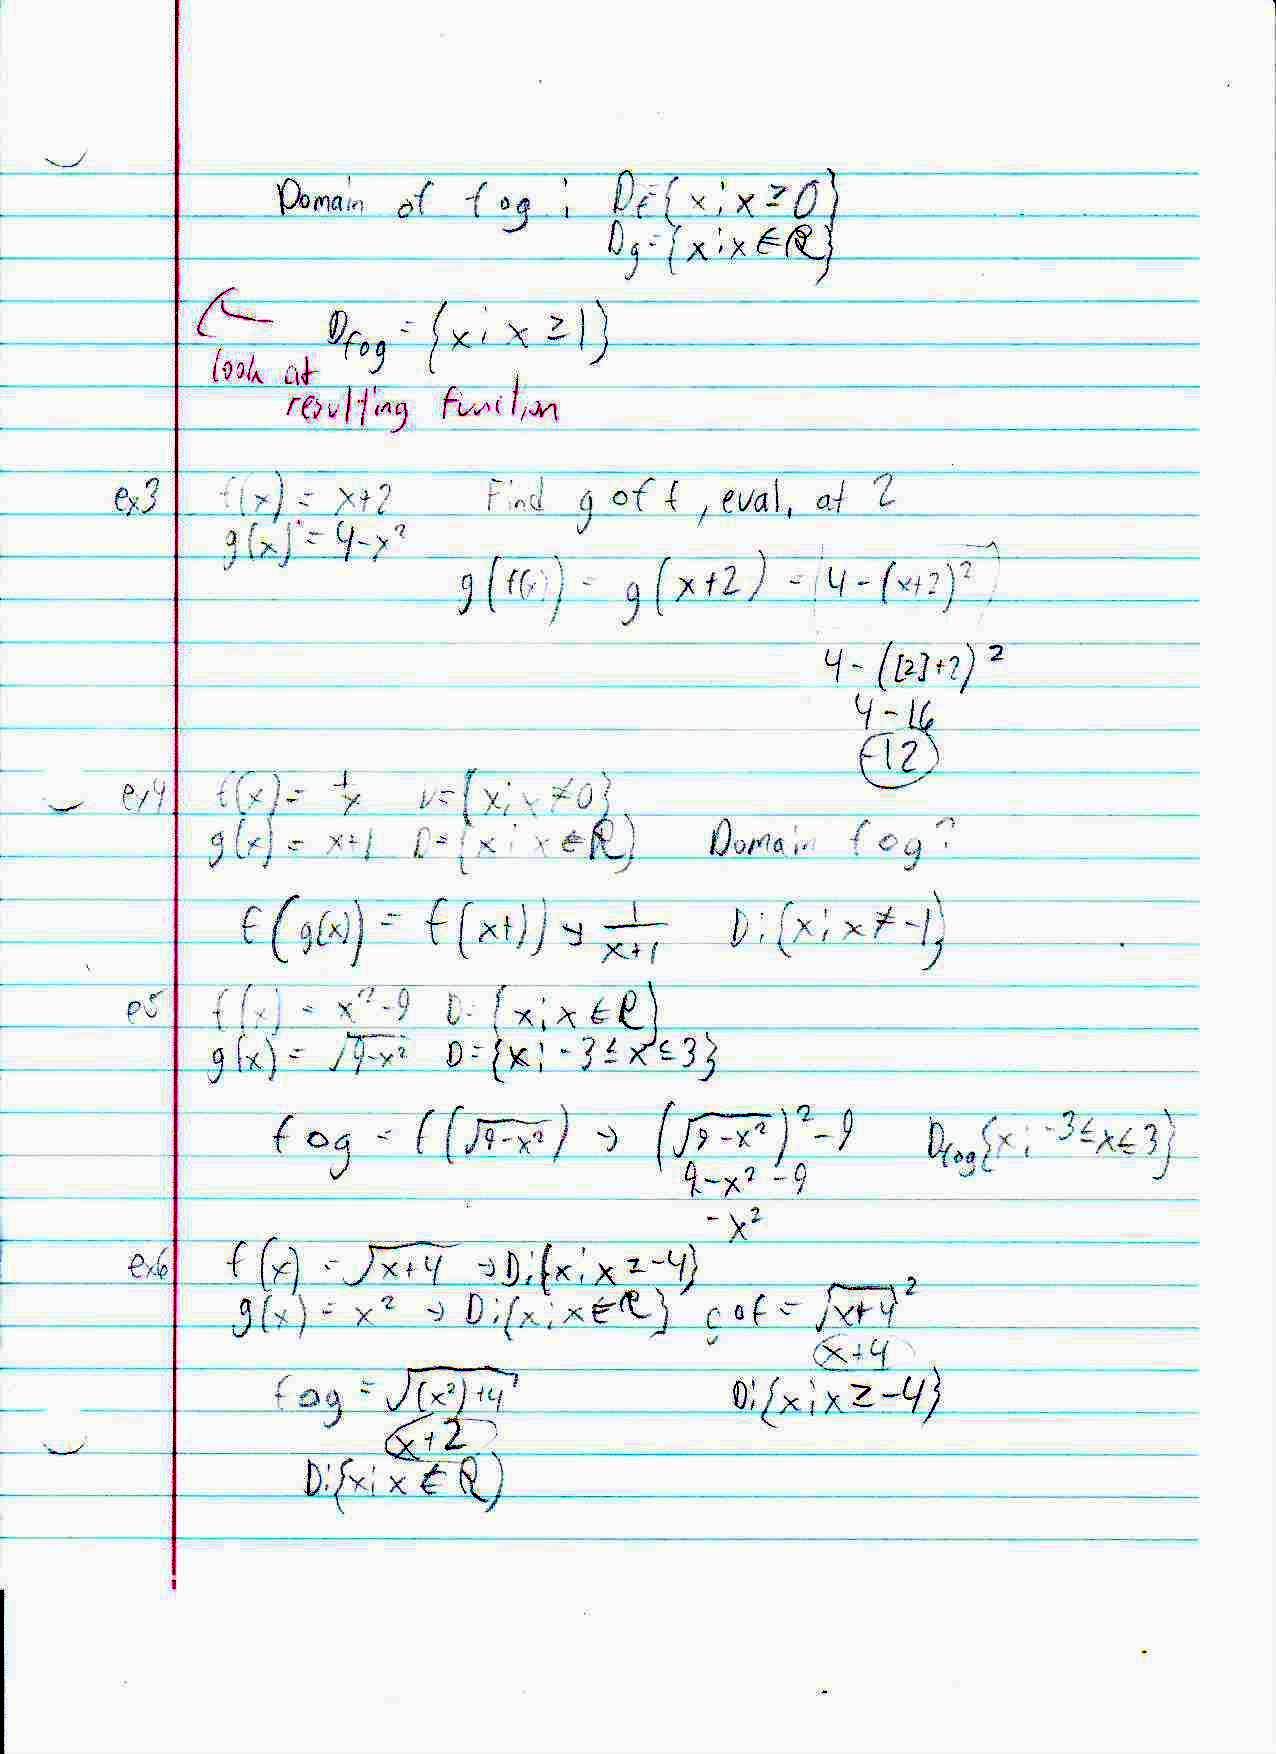 Domain of fog : Df={x;x≥0}
Dg={x;x∈ℝ}
Dfog = {x; x≥1}
look at
resulting function
ex3 f(x) = x+2 Find g of f, eval. at 2
g(x) = 4-x²
g(f(x)) = g(x+2) = 4-(x+2)²
4-([2]+2)²
4-16
-12
ex4 f(x) = 1/x D={x;x≠0}
g(x) = x+1 D={x; x∈ℝ} Domain fog?
f(g(x)) = f(x+1) → 1/(x+1) D:{x; x≠-1}
ex5 f(x) = x²-9 D={x;x∈ℝ}
g(x) = √(9-x²) D={x; -3≤x≤3}
fog = f(√(9-x²)) → (√(9-x²))²-9 Dfog{x; -3≤x≤3}
9-x²-9
-x²
ex6 f(x) = √(x+4) → D:{x; x≥-4}
g(x) = x² → D:{x;x∈ℝ} gof = √(x+4)²
x+4
fog = √((x²)+4) D:{x;x≥-4}
x+2
D:{x; x∈ℝ}